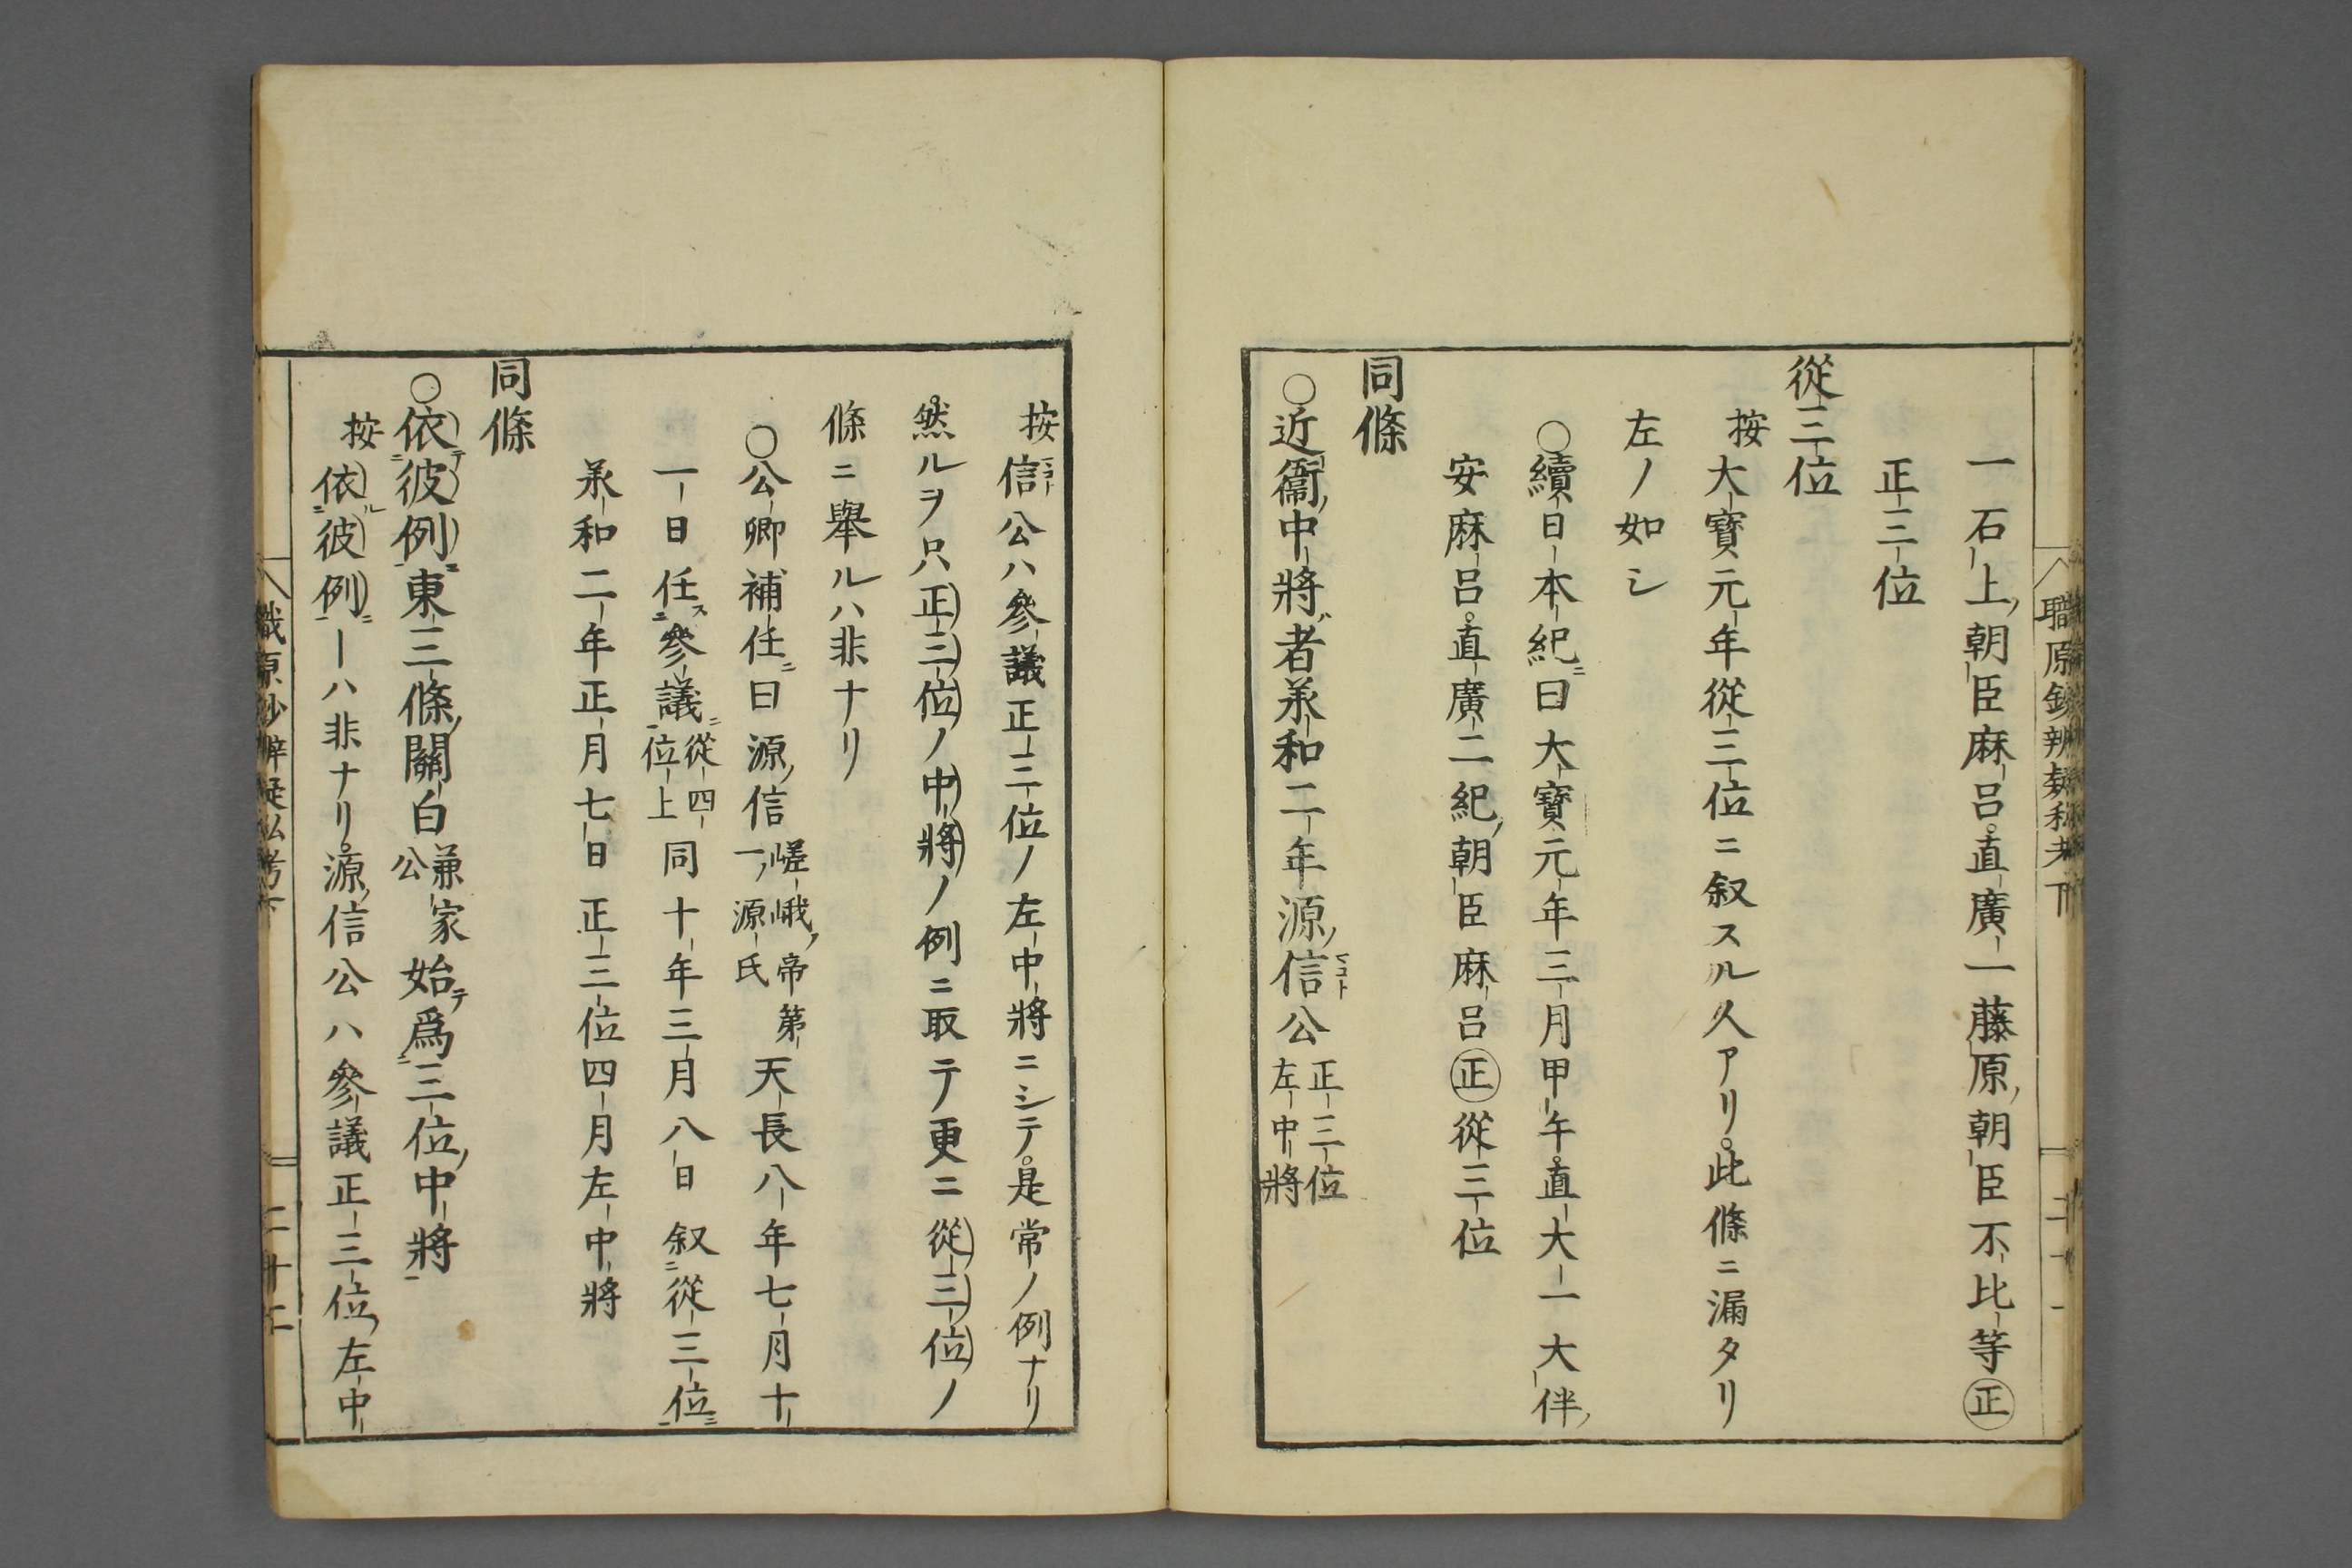 職原鈔辨疑私考下
二十一
一石上朝臣麻呂直廣一藤原朝臣不比等正
正三位
從三位
按大寶元年從三位ニ叙スル久アリ此條ニ漏タリ
左ノ如シ
○續日本紀ニ曰大寶元年三月甲午直大一大伴
安麻呂直廣二紀朝臣麻呂正從三位
同條
○近衞中將者承和二年源信公正三位左中將
按信公ハ參議正三位ノ左中將ニシテ是常ノ例ナリ
然ルヲ只正三位ノ中將ノ例ニ取テ更ニ從三位ノ
條ニ舉ルハ非ナリ
○公卿補任ニ曰源信嵯峨帝第一源氏天長八年七月十
一日任ス參議ニ從四位上同十年三月八日叙從三位ニ
承和二年正月七日正三位四月左中將
同條
○依テ彼例ニ東三條關白兼家公始テ爲三位中將
按依ル彼例ニーハ非ナリ源信公ハ參議正三位左中
職原鈔辨疑私考下
二十二